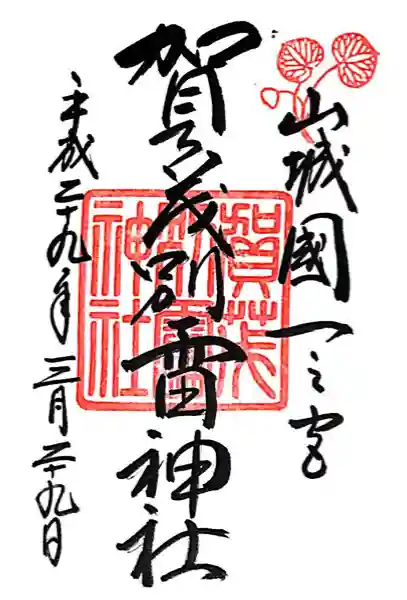 山城國一之宮
賀茂別雷神社
平成二十九年三月二十九日
賀茂別雷神社